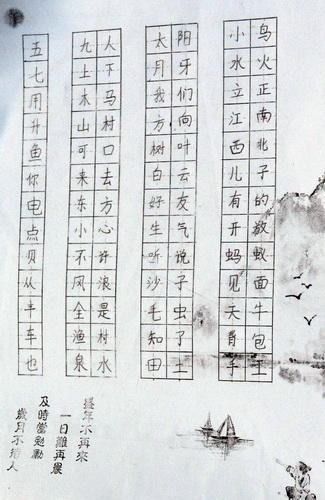 鸟火正南北子的放蚁面牛包王
小水立江西儿有开蚂见天看手
阳牙们向叶云友气说子虫了土
太月我方树白好生听沙毛知田
人下马村口去方心许浪是村水
九土木山可来东小不风全渔泉
五七用升鱼你电点贝从半车也
盛年不再來
一日難再晨
及時當勉勵
歲月不待人